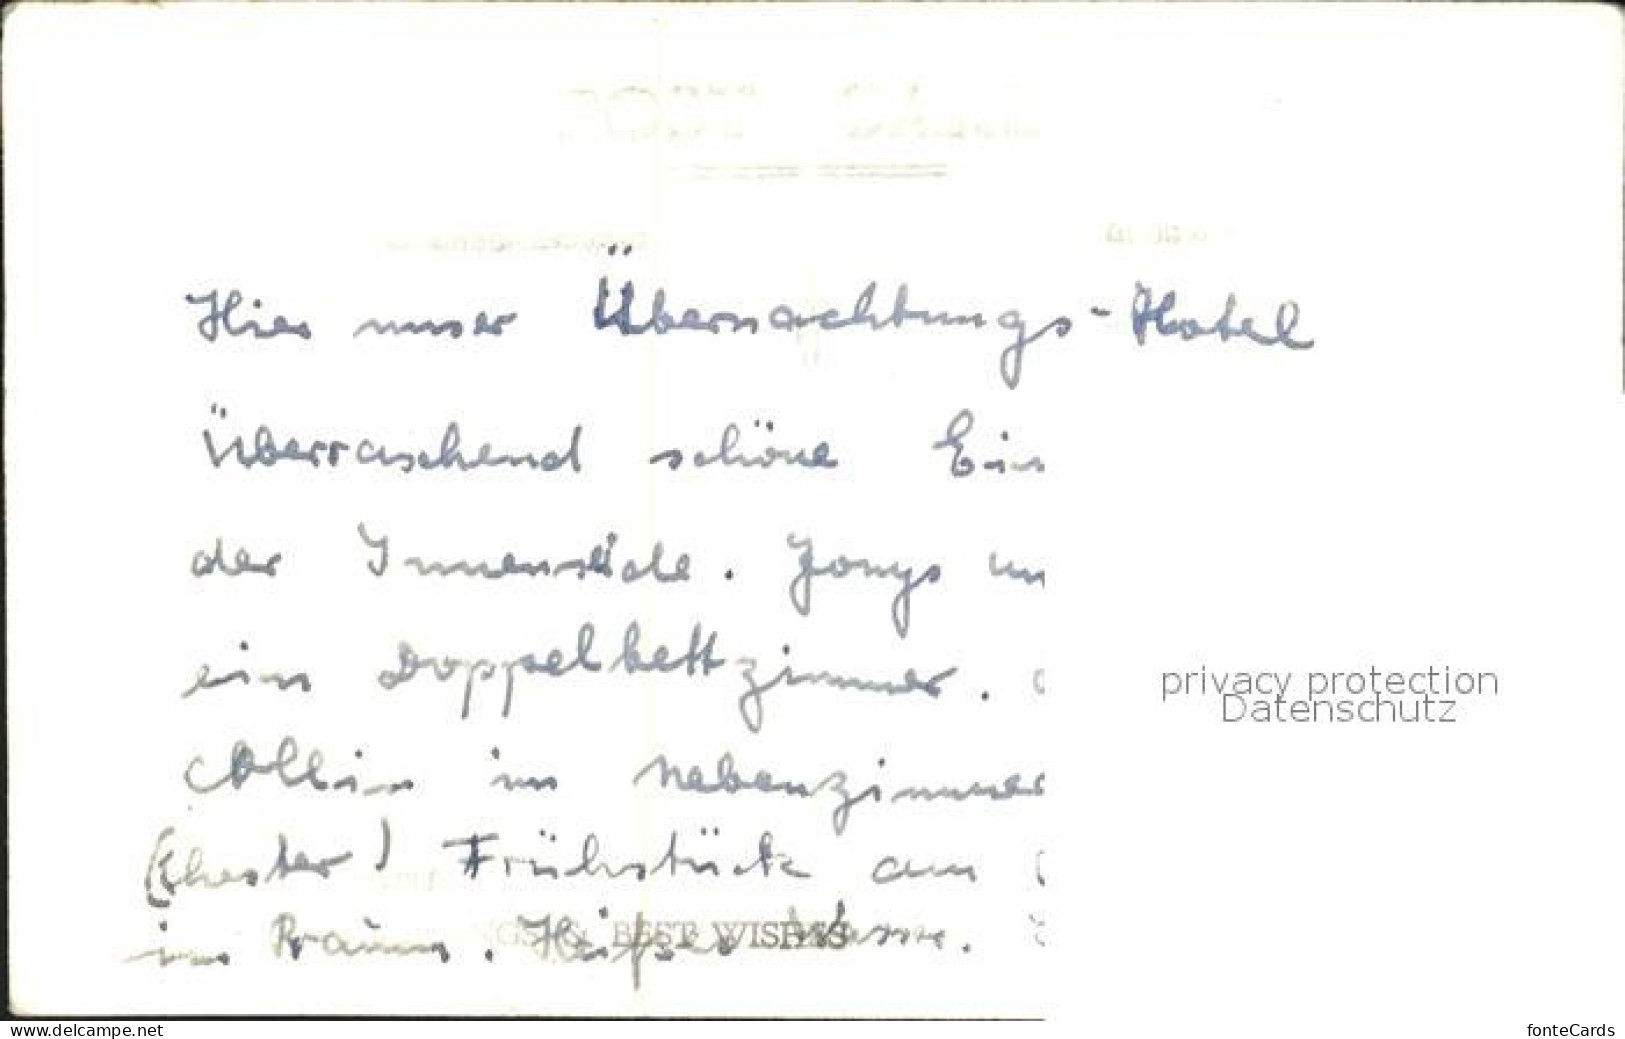 Hier unser Übernachtungs-Hotel
Überraschend schöne Ein
der Innenseide. Jonys un
ein Doppelbettzimmer.
im Nebenzimmer
(Chester) Frühstück am
im Raum. Heißes Wasser.
GS & BEST WISHES
privacy protection
Datenschutz
www.delcampe.net
fonteCards